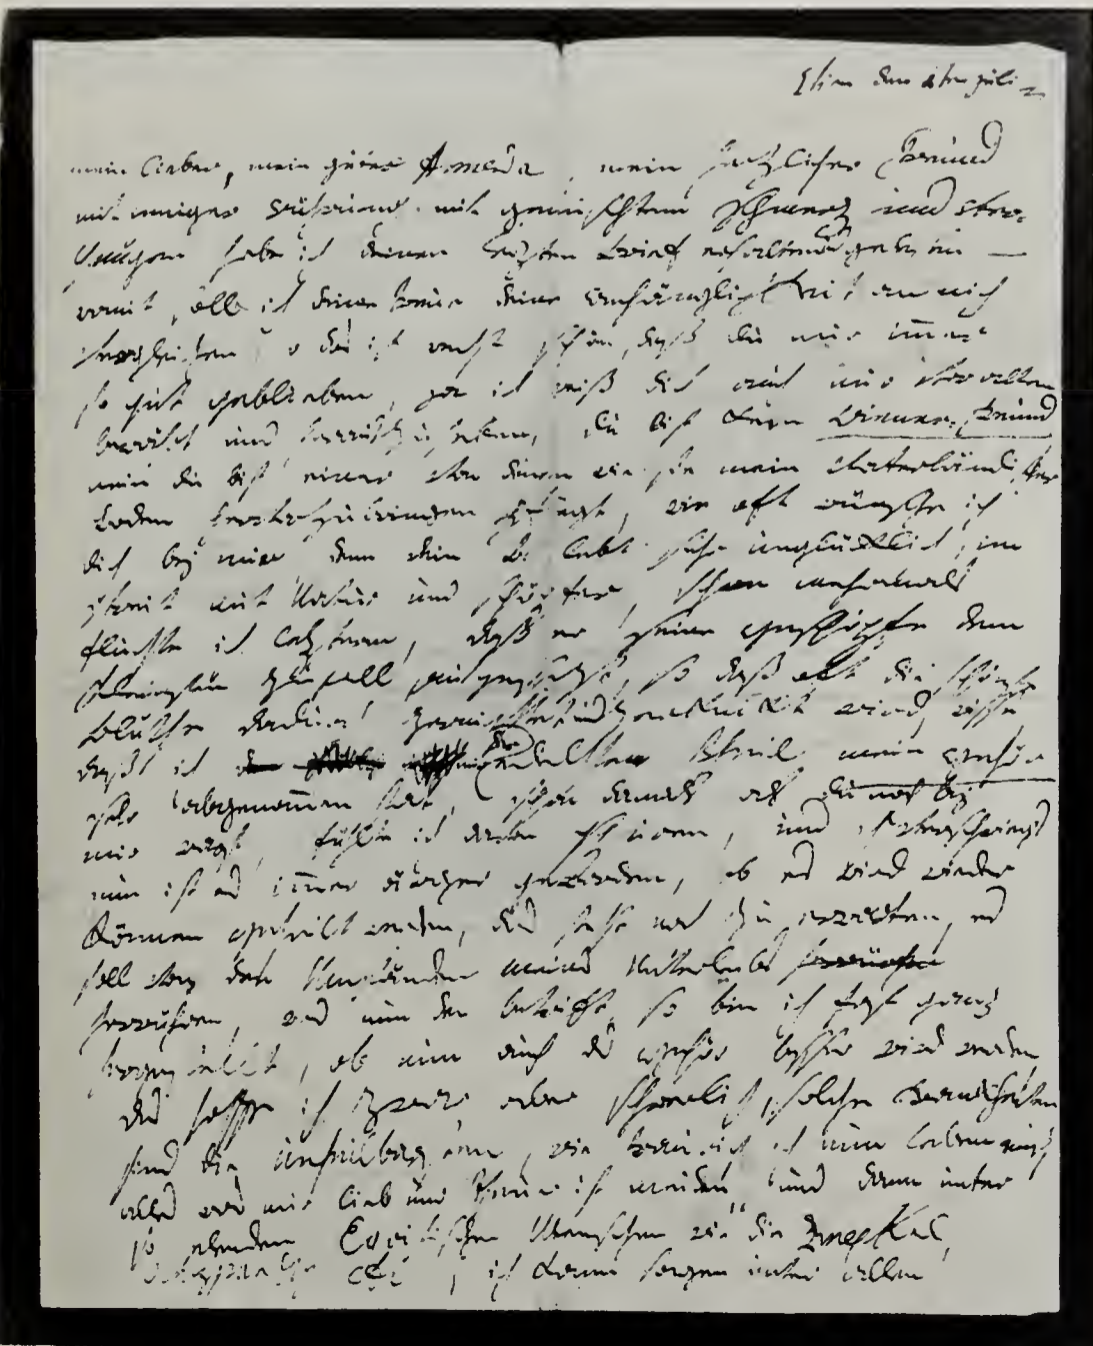 Wien den 1ten juli –
mein lieber, mein guter Amenda, mein herzlicher Freund
mit inniger Rührung mit gemischtem Schmerz und Ver-
gnügen habe ich deinen letzten Brief erhalten und gelesen —
womit soll ich deine Treue deine Anhänglichkeit an mich
vergleichen, o das ist recht schön, daß du mir immer
so gut geblieben, ja ich weiß dich auch mir vor allen
bewährt und herauszuheben, du bist kein Wiener-Freund
nein du bist einer von denen wie sie mein Vaterländischer
Boden hervorzubringen pflegt, wie oft wünsche ich
dich bey mir denn dein B. lebt sehr unglücklich, im
streit mit Natur und schöpfer, schon mehrmals
fluchte ich letzterm, daß er seine Geschöpfe dem
kleinsten Zufall ausgesezt, so daß oft die schönste
Blüthe dadurch zernichtet und zerknickt wird, wisse
daß mir der edelste Theil mein Gehör
sehr abgenommen hat, schon damals als du noch bey
mir warst, fühlte ich davon spuren, und ich verschwieg's
nun ist es immer ärger geworden, ob es wird wieder
können geheilt werden, das steht noch zu erwarten, es
soll von den Umständen meines Unterleibs
herrühren, was nun den betrifft, so bin ich fast ganz
hergestellt, ob nun auch das Gehör besser wird werden
das hoffe ich zwar aber schwerlich, solche Krankheiten
sind die unheilbarsten, wie traurig ich nun leben muß
alles was mir lieb und theuer ist meiden und dann unter
so elenden Egoistischen Menschen wie die Zmeskal,
etc, ich kann sagen unter allen